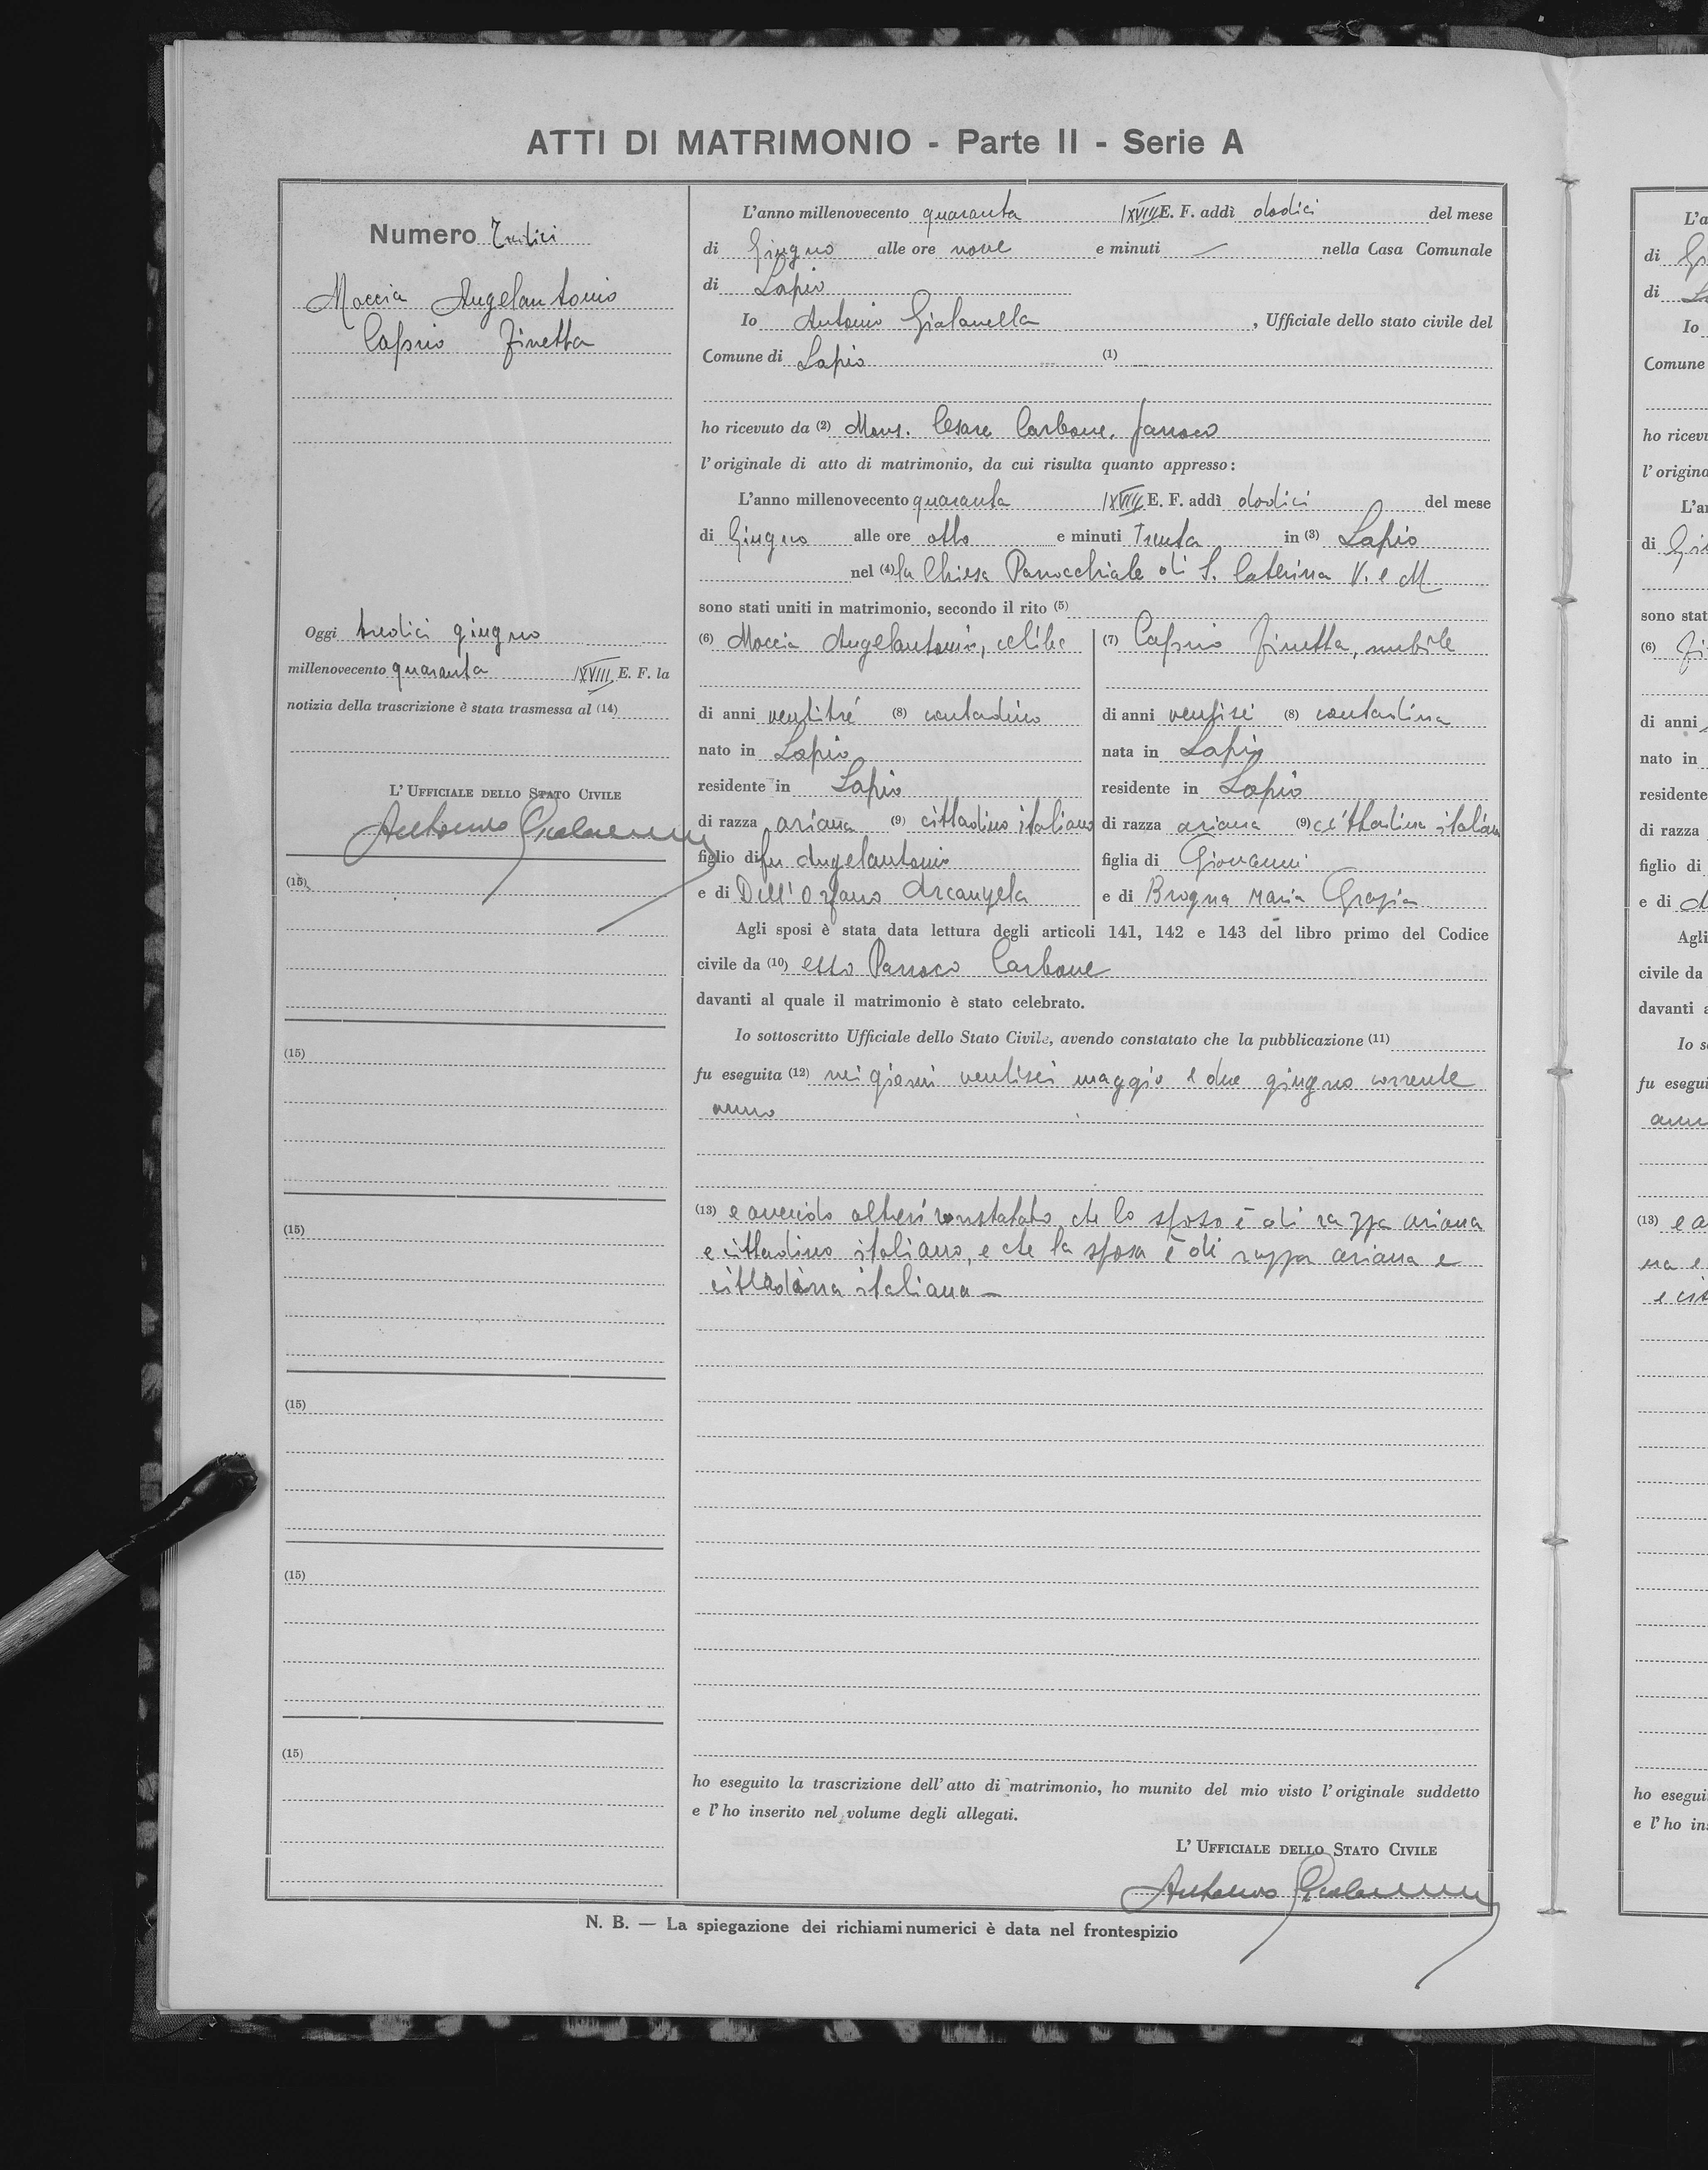 ATTI DI MATRIMONIO - Parte II - Serie A
Numero Tredici
Moccia Angelantonio
Caprio Finetta
Oggi tredici giugno
millenovecento quaranta XVIII E. F. la
notizia della trascrizione è stata trasmessa al (14)
L' UFFICIALE DELLO STATO CIVILE
Antonio Gialanella
(15)
(15)
(15)
(15)
(15)
(15)
L'anno millenovecento quaranta XVIII E. F. addì dodici del mese
di Giugno alle ore nove e minuti — nella Casa Comunale
di Lapio
Io Antonio Gialanella, Ufficiale dello stato civile del
Comune di Lapio (1)
ho ricevuto da (2) Mons. Cesare Carbone, parroco
l'originale di atto di matrimonio, da cui risulta quanto appresso:
L'anno millenovecento quaranta XVIII E. F. addì dodici del mese
di Giugno alle ore otto e minuti trenta in (3) Lapio
nel (4) la Chiesa Parrocchiale di S. Caterina V. e M
sono stati uniti in matrimonio, secondo il rito (5)
(6) Moccia Angelantonio, celibe
di anni ventitré (8) contadino
nato in Lapio
residente in Lapio
di razza ariana (9) cittadino italiano
figlio di fu Angelantonio
e di Dell'Orfano Arcangela
(7) Caprio Finetta, nubile
di anni ventisei (8) contadina
nata in Lapio
residente in Lapio
di razza ariana (9) cittadina italiana
figlia di Giovanni
e di Brogna Maria Grazia
Agli sposi è stata data lettura degli articoli 141, 142 e 143 del libro primo del Codice
civile da (10) esso Parroco Carbone
davanti al quale il matrimonio è stato celebrato.
Io sottoscritto Ufficiale dello Stato Civile, avendo constatato che la pubblicazione (11)
fu eseguita (12) nei giorni ventisei maggio e due giugno corrente
anno
(13) e avendo altresì constatato che lo sposo è di razza ariana
e cittadino italiano, e che la sposa è di razza ariana e
cittadina italiana —
ho eseguito la trascrizione dell'atto di matrimonio, ho munito del mio visto l'originale suddetto
e l'ho inserito nel volume degli allegati.
L' UFFICIALE DELLO STATO CIVILE
Antonio Gialanella
N. B. — La spiegazione dei richiami numerici è data nel frontespizio
L'a
di
di
Io
Comune
ho ricevu
l'origina
L'a
di
sono stat
(6)
di anni
nato in
residente
di razza
figlio di
e di
Agli
civile da
davanti a
Io s
fu esegui
(13) e a
ho esegui
e l'ho ins